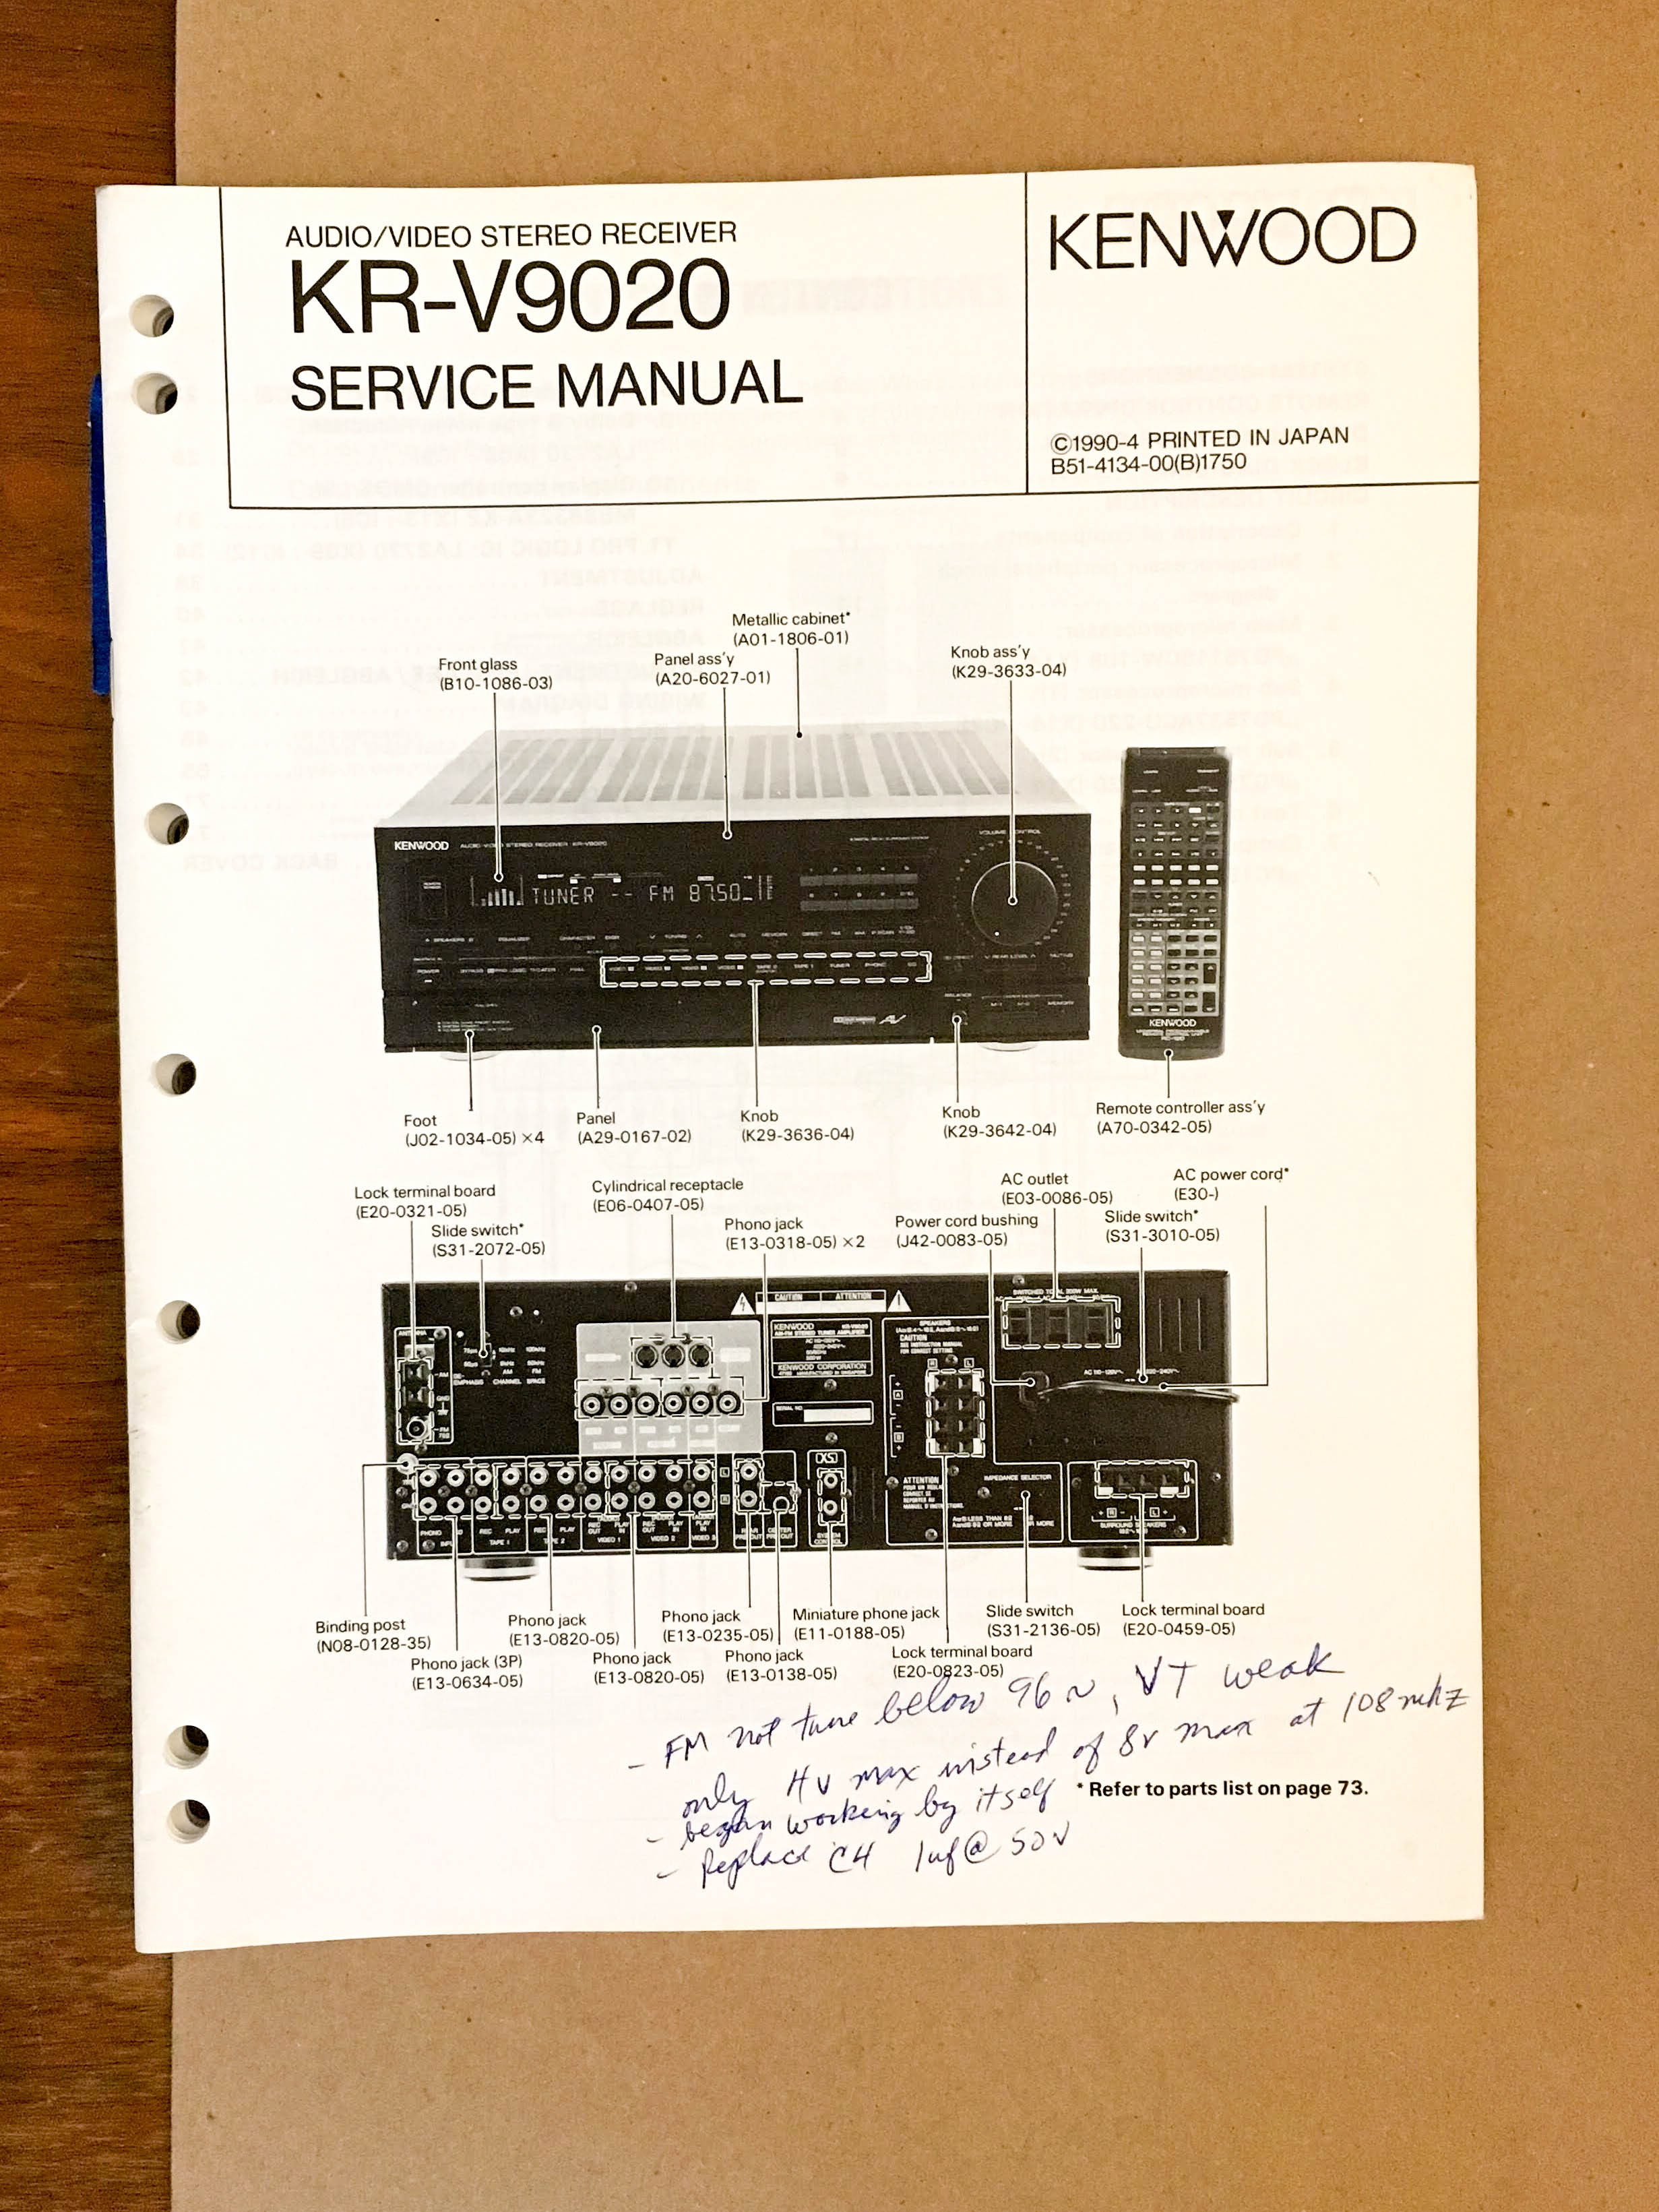 AUDIO/VIDEO STEREO RECEIVER
KR-V9020
SERVICE MANUAL
KENWOOD
©1990-4 PRINTED IN JAPAN
B51-4134-00(B)1750
Metallic cabinet*
(A01-1806-01)
Front glass
(B10-1086-03)
Panel ass'y
(A20-6027-01)
Knob ass'y
(K29-3633-04)
KENWOOD AUDIO VIDEO STEREO RECEIVER KR-V9020
VOLUME CONTROL
TUNER -- FM 87.50
KENWOOD
Foot
(J02-1034-05) ×4
Panel
(A29-0167-02)
Knob
(K29-3636-04)
Knob
(K29-3642-04)
Remote controller ass'y
(A70-0342-05)
Lock terminal board
(E20-0321-05)
Slide switch*
(S31-2072-05)
Cylindrical receptacle
(E06-0407-05)
Phono jack
(E13-0318-05) ×2
Power cord bushing
(J42-0083-05)
AC outlet
(E03-0086-05)
Slide switch*
(S31-3010-05)
AC power cord*
(E30-)
CAUTION ATTENTION
KENWOOD
KENWOOD CORPORATION
SERIAL NO.
SPEAKERS
CAUTION
ATTENTION
IMPEDANCE SELECTOR
SURROUND SPEAKERS
Binding post
(N08-0128-35)
Phono jack (3P)
(E13-0634-05)
Phono jack
(E13-0820-05)
Phono jack
(E13-0820-05)
Phono jack
(E13-0235-05)
Phono jack
(E13-0138-05)
Miniature phone jack
(E11-0188-05)
Lock terminal board
(E20-0823-05)
Slide switch
(S31-2136-05)
Lock terminal board
(E20-0459-05)
- FM not tune below 96~, VT weak
only 4v max instead of 8v max at 108mhz
- began working by itself
* Refer to parts list on page 73.
- Replace C4 1uf@50v